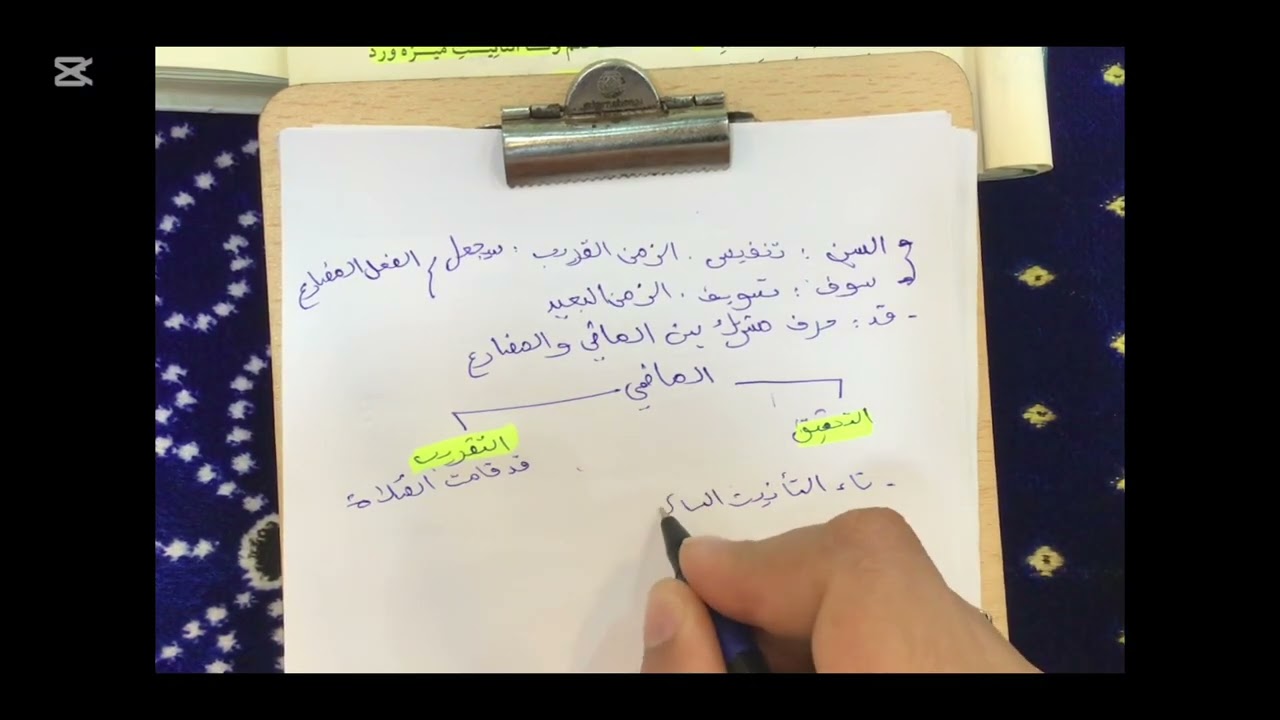 التأنيث ميزه ورد
international
السن : تنفيس . الزمن القريب : سيجعل م الفعل المضارع
سوف : تسويف . الزمن البعيد
- قد : حرف مشترك بين الماضي والمضارع
الماضي
التحقيق
التقريب
قد قامت الصلاة
- تاء التأنيث السا